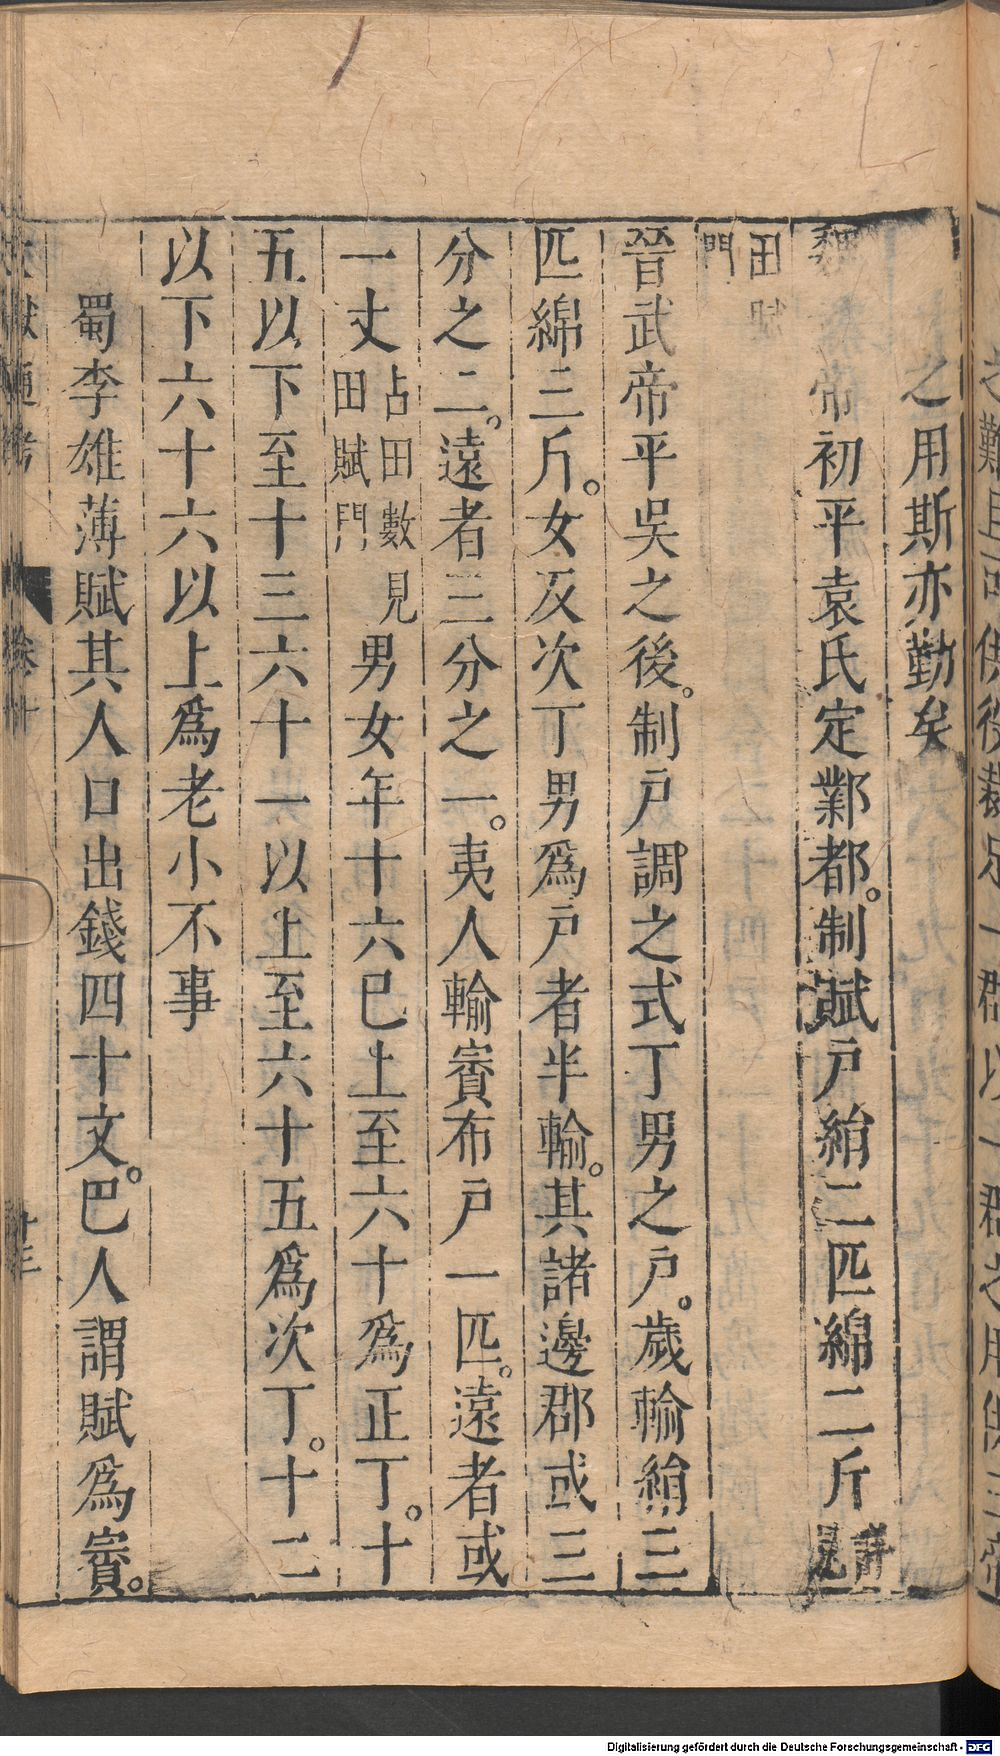 之用斯亦勤矣
魏武帝初平袁氏定鄴都制賦戶絹二匹綿二斤詳見
田賦門
晉武帝平吳之後制戶調之式丁男之戶歲輸絹三
匹綿三斤女及次丁男爲戶者半輸其諸邊郡或三
分之二遠者三分之一夷人輸賨布戶一匹遠者或
一丈占田數見田賦門男女年十六已上至六十爲正丁十
五以下至十三六十一以上至六十五爲次丁十二
以下六十六以上爲老小不事
蜀李雄薄賦其人口出錢四十文巴人謂賦爲賨
文獻通考 卷十 十三
Digitalisierung gefördert durch die Deutsche Forschungsgemeinschaft - DFG